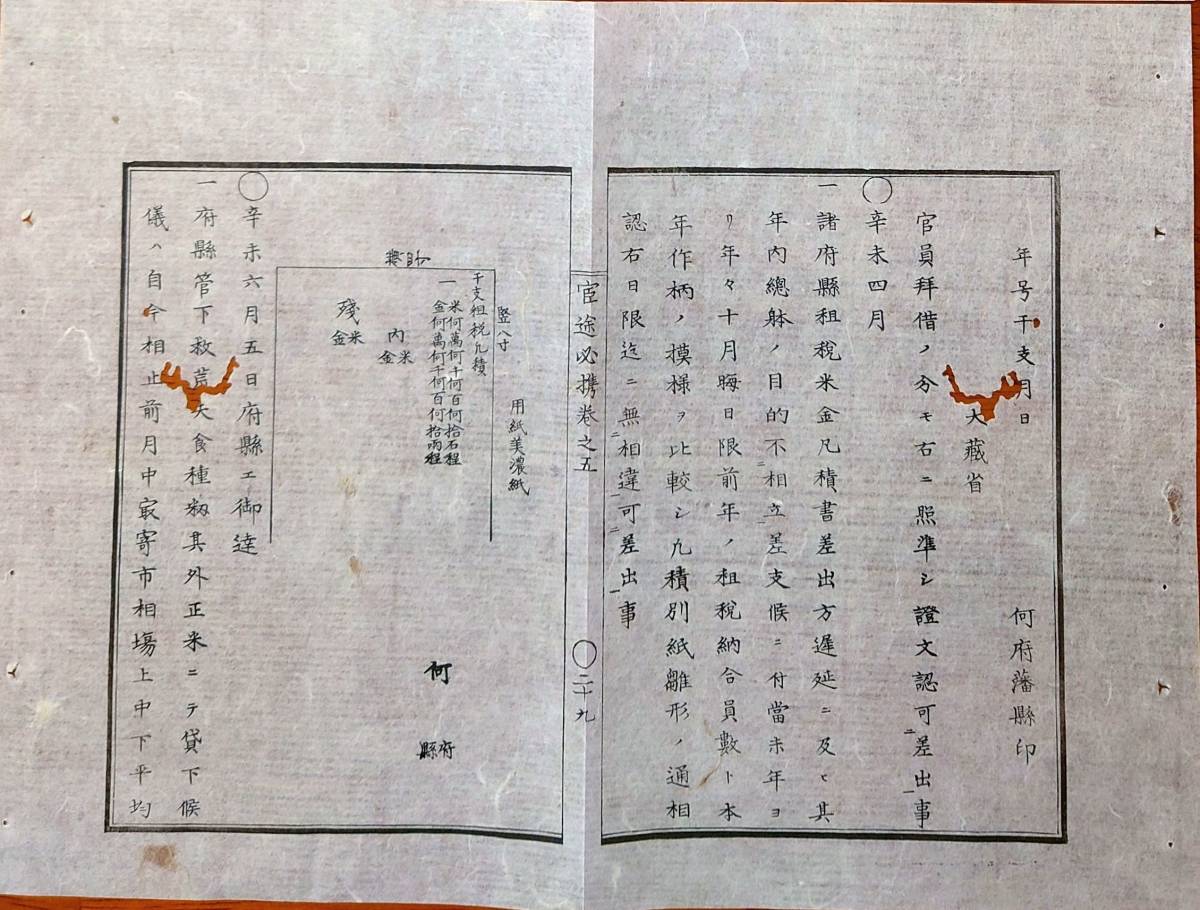 年号干支月日
何府藩縣印
大藏省
官員拜借ノ分モ右ニ照準シ證文認可二差出一事
○
辛未四月
一諸府縣租税米金凡積書差出方遲延ニ及ヒ其
年内總躰ノ目的不二相立一差支候ニ付當未年ヨ
リ年々十月晦日限前年ノ租税納合員數ト本
年作柄ノ摸樣ヲ比較シ凡積別紙雛形ノ通相
認右日限迄ニ無二相違一可二差出一事
宦途必携卷之五
○二十九
用紙美濃紙
竪八寸
干支租税凡積
一
米何萬何千何百何拾石程
金何萬何千何百何拾兩程
内
米
金
殘
米
金
何
府
縣
○
辛未六月五日府縣エ御達
一府縣管下救荒夫食種籾其外正米ニテ貸下候
儀ハ自今相止前月中㝡寄市相塲上中下平均